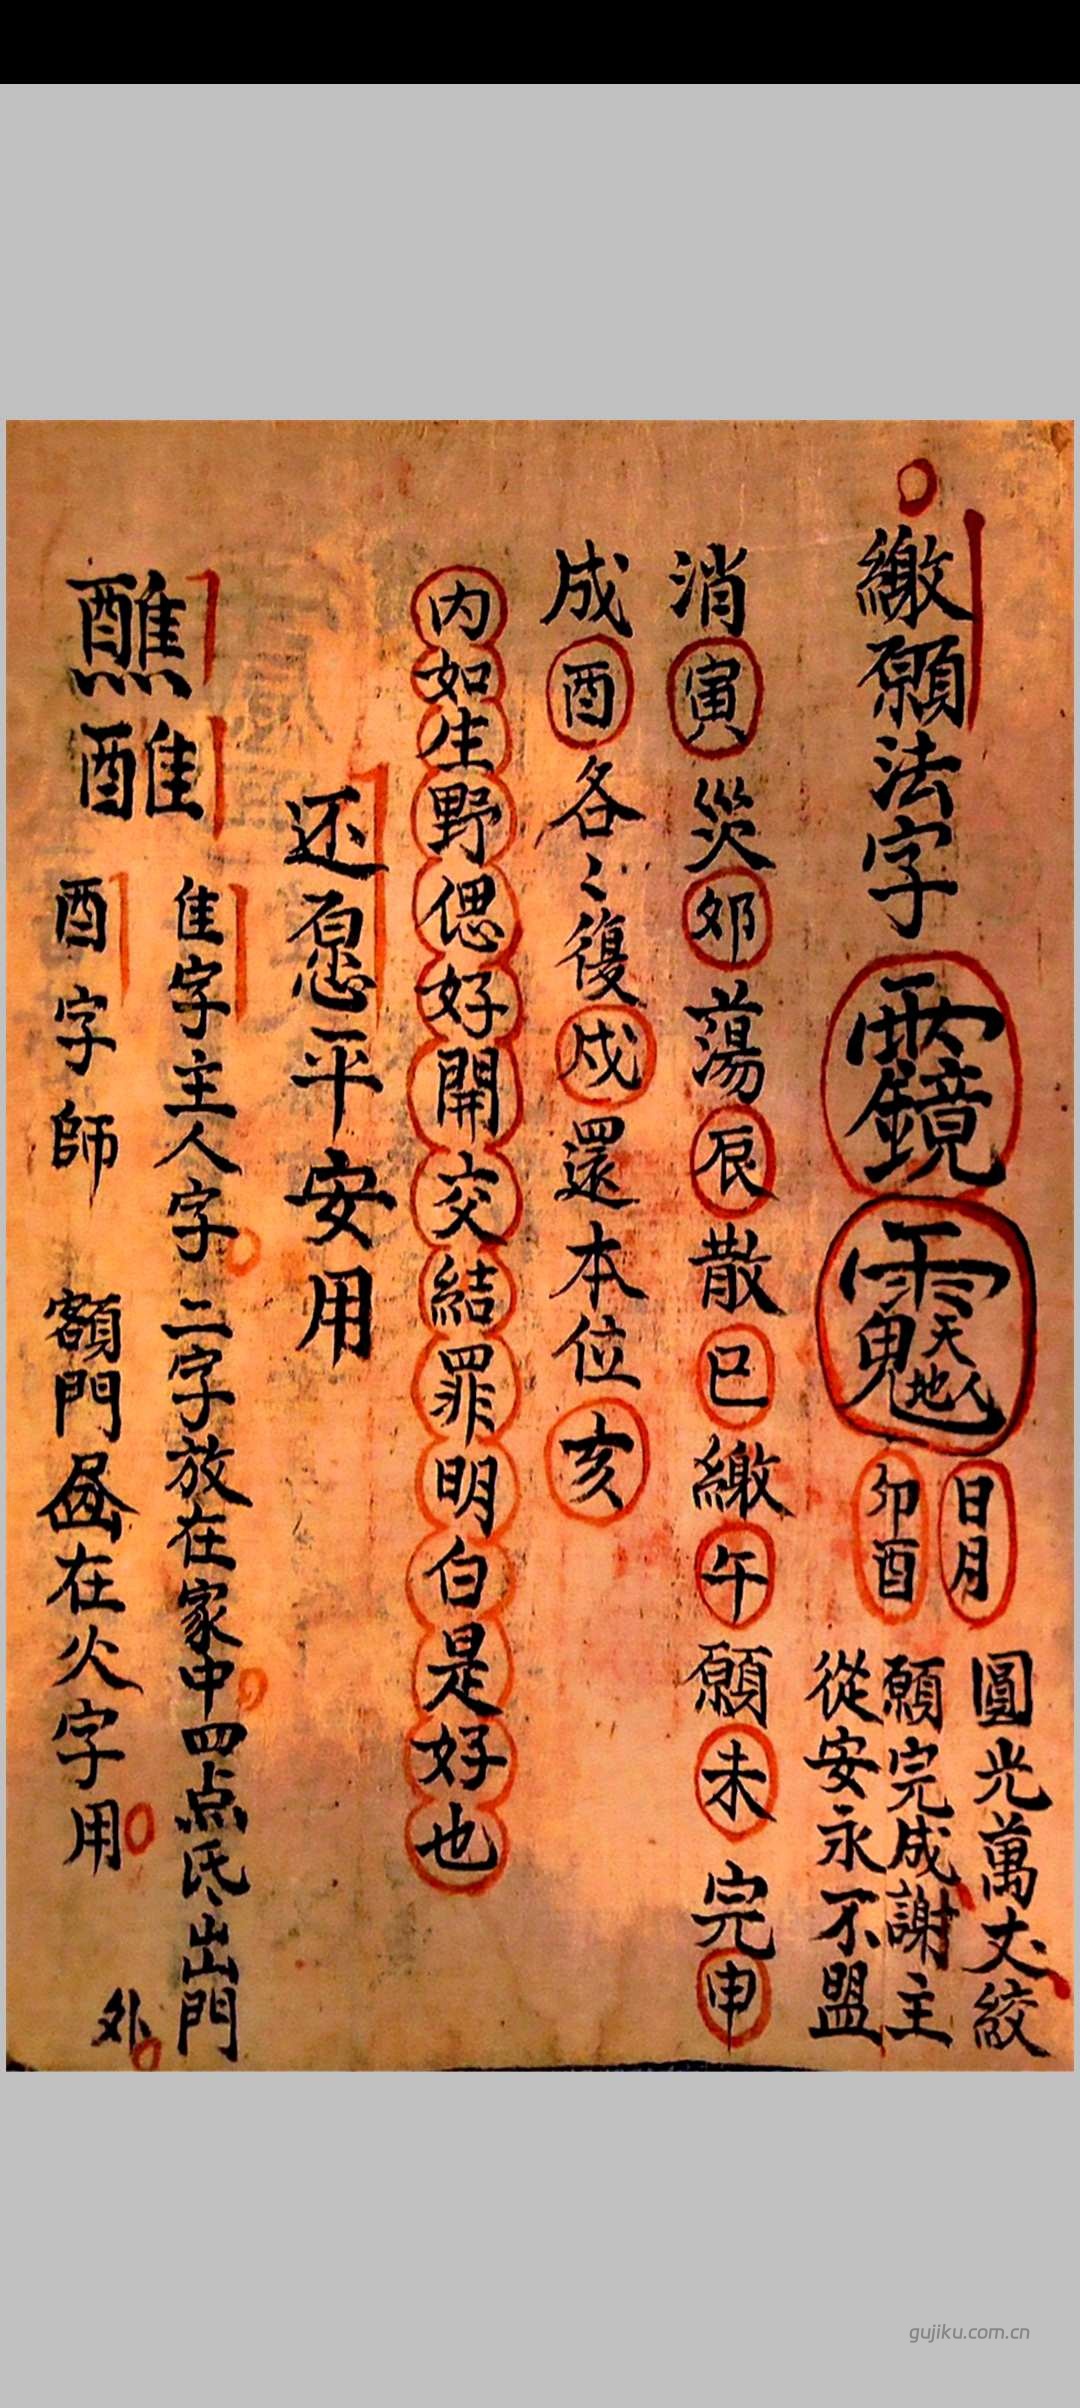 繳願法字
日月
卯酉
圓光萬丈絞
願完成謝主
從安永不盟
消寅災卯蕩辰散巳繳午願未完申
成酉各々復戌還本位亥
内如生野偲好開交結罪明白是好也
还愿平安用
醮醀
隹字主人字二字放在家中四点氐出門外
酉字師 額門 在火字用
gujiku.com.cn